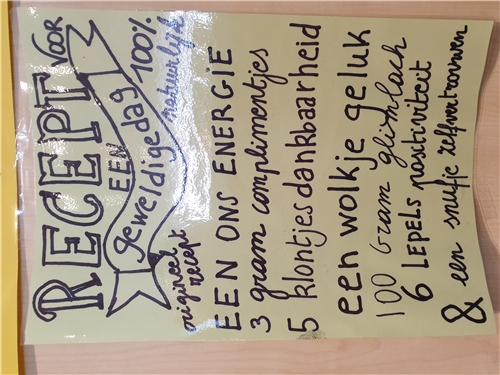 RECEPT VOOR
EEN
geweldige dag 100%
natuurlijk
origineel
recept
EEN ONS ENERGIE
3 gram complimentjes
5 klontjes dankbaarheid
een wolkje geluk
100 Gram glimlach
6 LEPELS positiviteit
& een snufje zelfvertrouwen